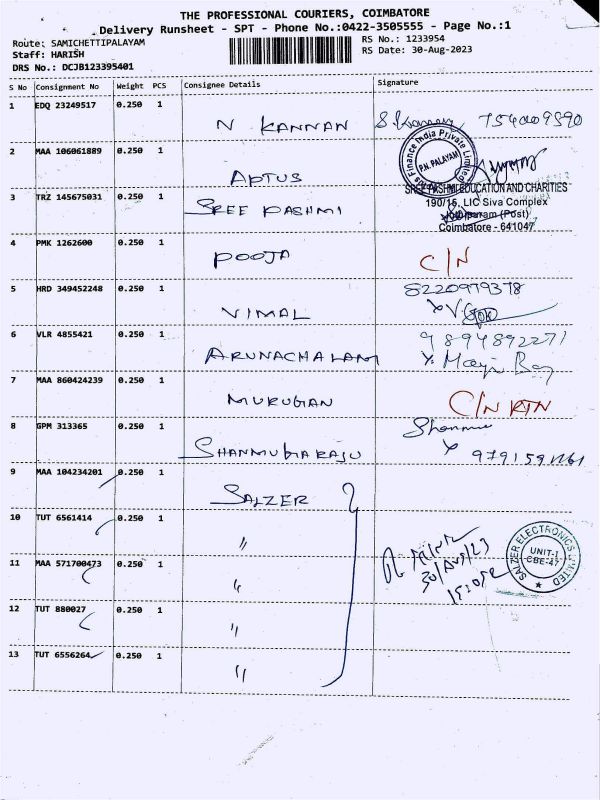 THE PROFESSIONAL COURIERS, COIMBATORE
Delivery Runsheet - SPT - Phone No.:0422-3505555 - Page No.:1
Route: SAMICHETTIPALAYAM
RS No.: 1233954
Staff: HARISH
RS Date: 30-Aug-2023
DRS No.: DCJB123395401
S No Consignment No Weight PCS Consignee Details Signature
1 EDQ 23249517 0.250 1
N KANNAN
2 MAA 106061889 0.250 1
P.N. PALAYAM
APTUS
SREE PASHMI EDUCATION AND CHARITIES
3 TRZ 145675031 0.250 1
190/16, LIC Siva Complex
SREE PASHMI
(Post)
Coimbatore - 641047
4 PMK 1262600 0.250 1
POOJA C/N
5 HRD 349452248 0.250 1
8220979378
VIMAL
6 VLR 4855421 0.250 1
9894892271
ARUNACHALAM
7 MAA 860424239 0.250 1
MURUGAN C/N RTN
8 GPM 313365 0.250 1
SHANMUGARAJU
9 MAA 104234201 0.250 1
SALZER
10 TUT 6561414 0.250 1
〃
SALZER ELECTRONICS LIMITED
UNIT-I
CBE-47
11 MAA 571700473 0.250 1
30/Aug/23
〃
12 TUT 880027 0.250 1
〃
13 TUT 6556264 0.250 1
〃